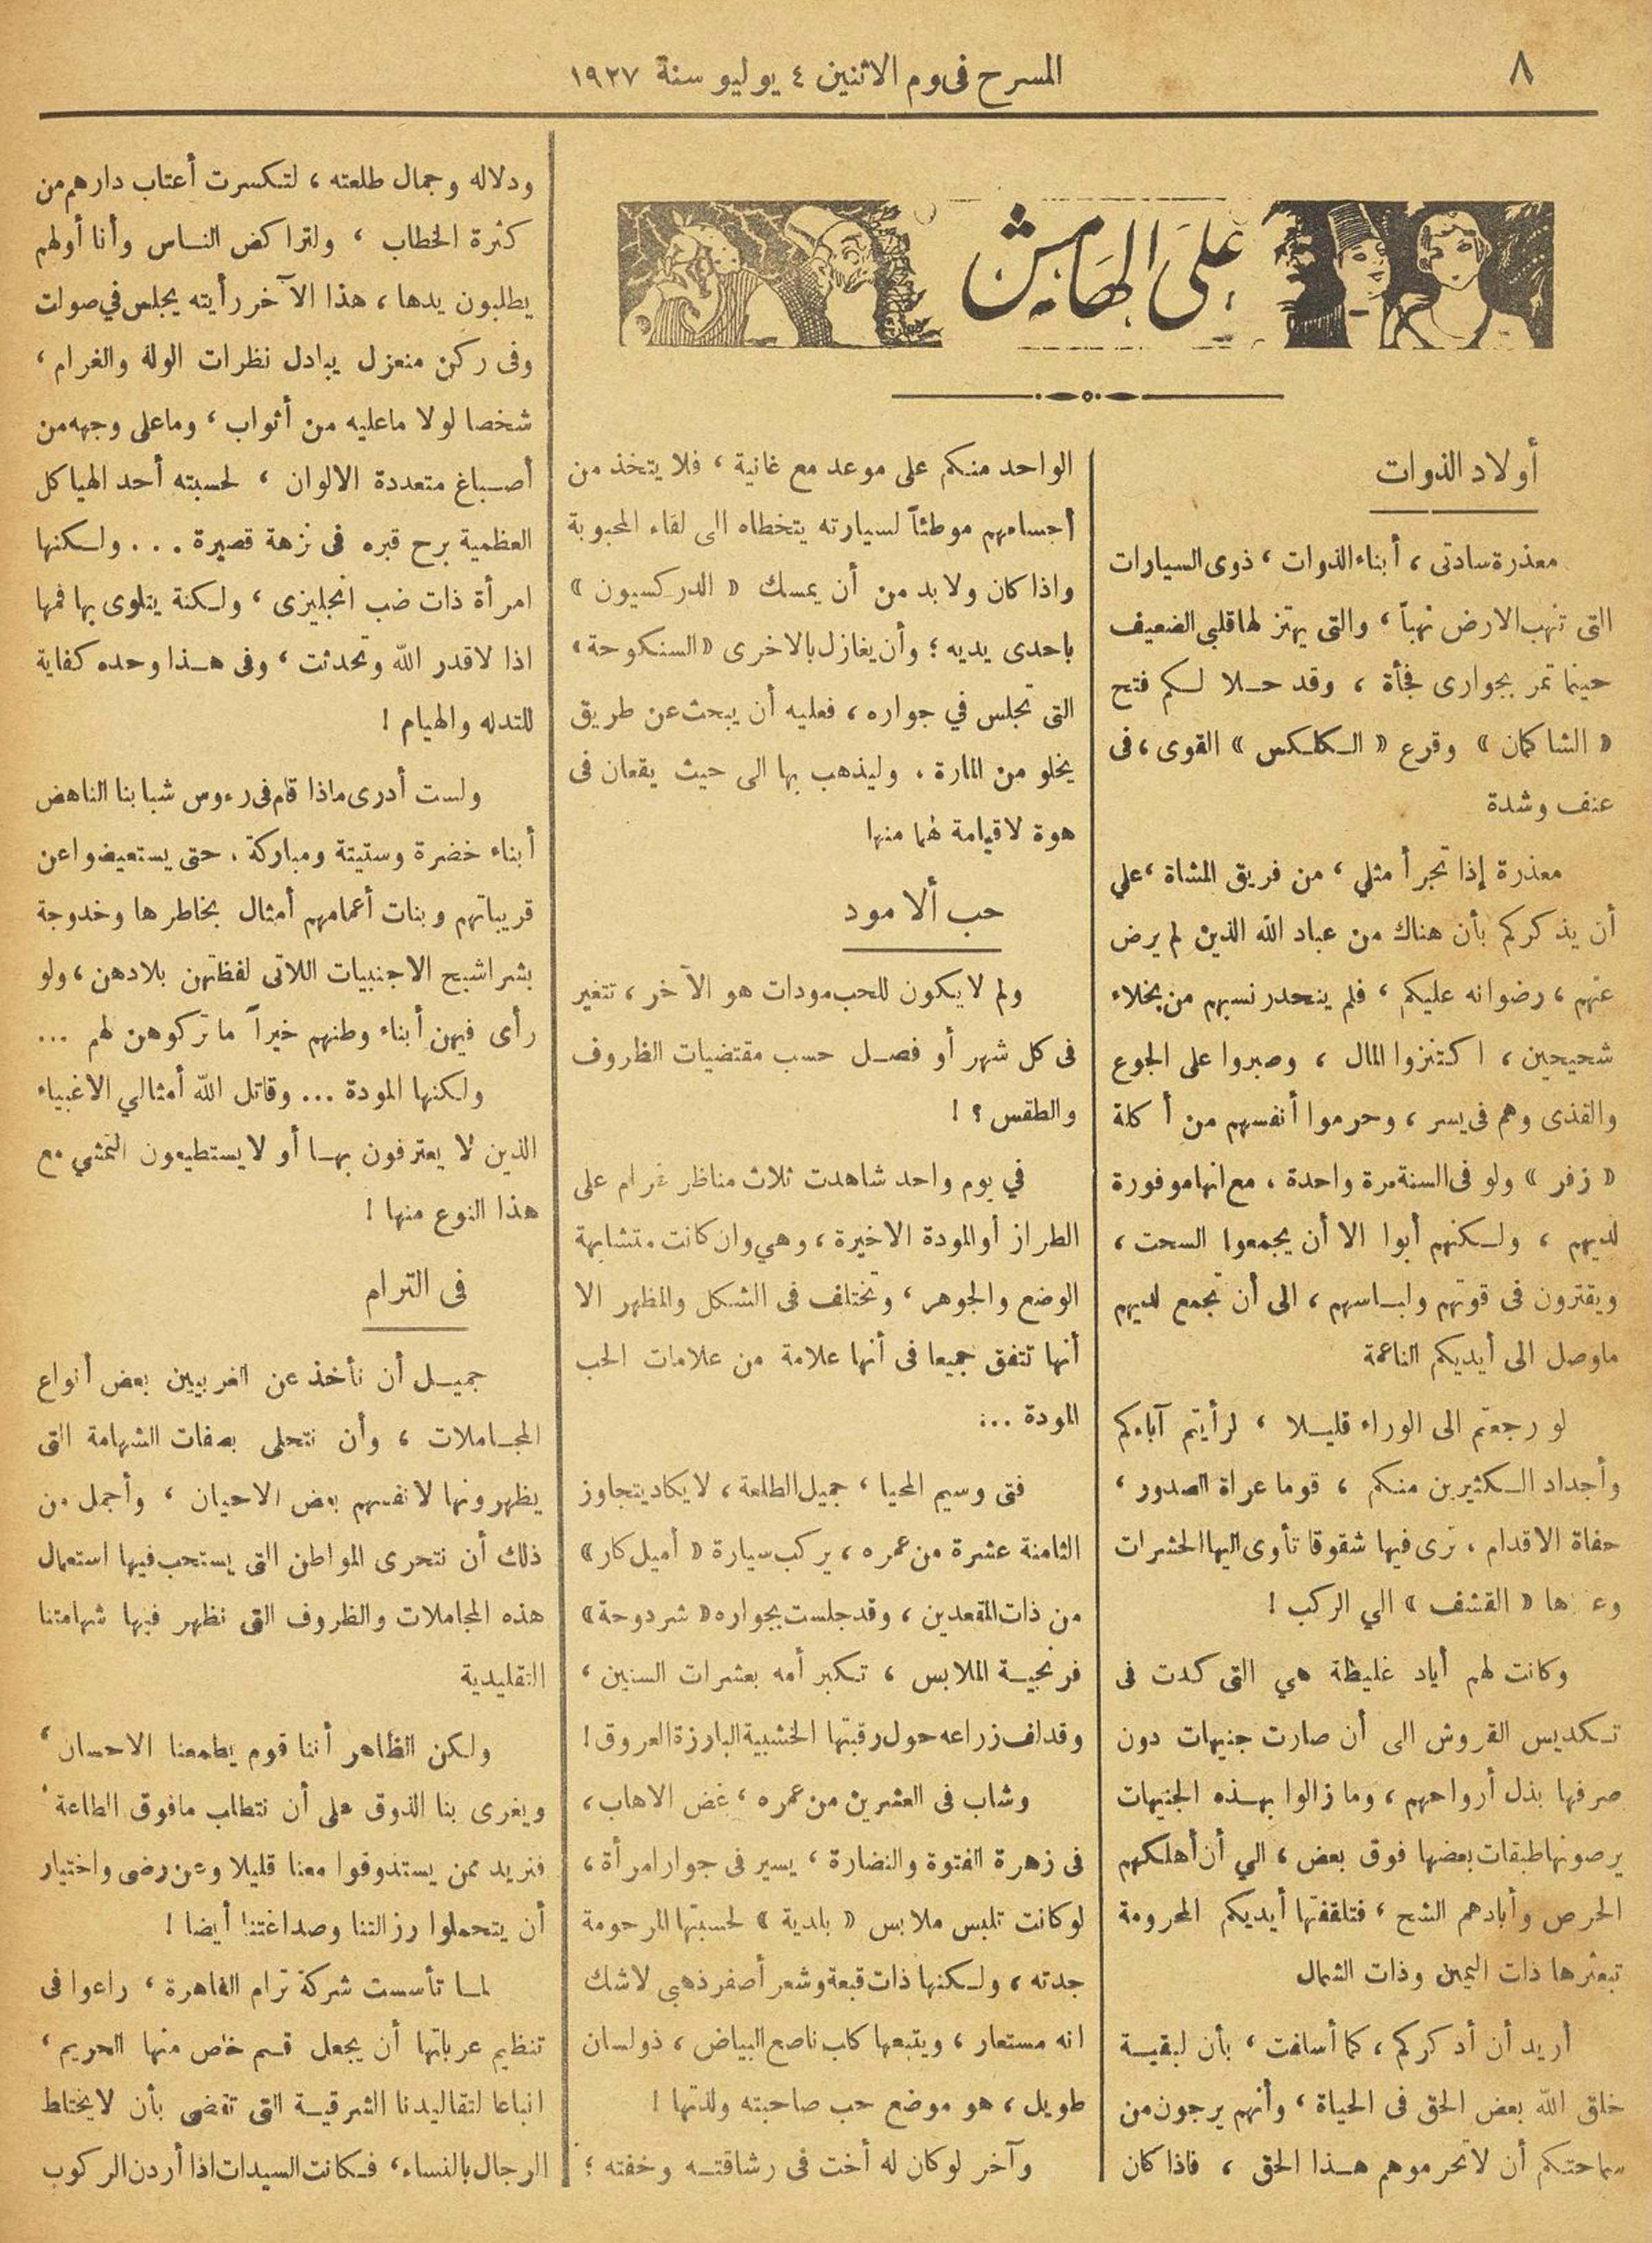 ٨
المسرح فى وم الاثنين ٤ يوليو سنة ١٩٢٧
على الهامش
أولاد الذوات
معذرة سادتى ، أبناء الذوات ، ذوى السيارات
التى تنهب الارض نهباً ، والتى يهتز لها قلبى الضعيف
حينما تمر بجوارى فجأة ، وقد حلا لكم فتح
« الشاكمان » وقرع « الكلكس » القوى ، فى
عنف وشدة
معذرة إذا تجرأ مثلي ، من فريق المشاة ، علي
أن يذكركم بأن هناك من عباد الله الذين لم يرض
عنهم ، رضوانه عليكم ، فلم ينحدر نسبهم من بخلاء
شحيحين ، اكتنزوا المال ، وصبروا على الجوع
والقذى وهم فى يسر ، وحرموا أنفسهم من أكلة
« زفر » ولو فى السنة مرة واحدة ، مع انها موفورة
لديهم ، ولكنهم أبوا الا أن يجمعوا السحت ،
ويقترون فى قوتهم ولباسهم ، الى أن تجمع لديهم
ماوصل الى أيديكم الناعمة
لو رجعتم الى الوراء قليلا ، لرأيتم آباءكم
وأجداد الكثيرين منكم ، قوما عراة الصدور ،
حفاة الاقدام ، ترى فيها شقوقا تأوى اليها الحشرات
ها « القشف » الي الركب !
وكانت لهم أياد غليظة هي التى كدت فى
تكديس القروش الى أن صارت جنيهات دون
صرفها بذل أرواحهم ، وما زالوا بهذه الجنيهات
يرصونها طبقات بعضها فوق بعض ، الي أن أهلكهم
الحرص وأبادهم الشح ، فتلقفتها أيديكم المحرومة
تبعثرها ذات اليمين وذات الشمال
أريد أن أدكركم ، كما أسلفت ، بأن لبقية
خلق الله بعض الحق فى الحياة ، وأنهم يرجون من
سماحتكم أن لاتحرموهم هذا الحق ، فاذا كان
الواحد منكم على موعد مع غانية ، فلا يتخذ من
أجسامهم موطئاً لسيارته يتخطاه الى لقاء المحبوبة
واذا كان ولا بد من أن يمسك « الدركسيون »
باحدى يديه ؛ وأن يغازل بالاخرى « السنكوحة »
التى تجلس في جواره ، فعليه أن يبحث عن طريق
يخلو من المارة ، وليذهب بها الى حيث يقعان فى
هوة لاقيامة لهما منها
حب ألا مود
ولم لا يكون للحب مودات هو الآخر ، تتغير
فى كل شهر أو فصل حسب مقتضيات الظروف
والطقس ؟ !
في يوم واحد شاهدت ثلاث مناظر غرام على
الطراز أو المودة الاخيرة ، وهي وان كانت متشابهة
الوضع والجوهر ، وتختلف فى الشكل والمظهر الا
أنها تتفق جميعا فى أنها علامة من علامات الحب
المودة ...
فتى وسيم المحيا ، جميل الطلعة ، لا يكاد يتجاوز
الثامنة عشرة من عمره ، يركب سيارة « أميل كار »
من ذات المقعدين ، وقد جلست بجواره « شردوحة »
فرنجية الملابس ، تكبر أمه بعشرات السنين ،
وقد لف زراعه حول رقبتها الخشبية البارزة العروق !
وشاب فى العشرين من عمره ، غض الاهاب ،
فى زهرة الفتوة والنضارة ، يسير فى جوار امرأة ،
لو كانت تلبس ملابس « بلدية » لحسبتها المرحومة
جدته ، ولكنها ذات قبعة وشعر أصفر ذهبي لاشك
انه مستعار ، ويتبعها كلب ناصع البياض ، ذو لسان
طويل ، هو موضع حب صاحبته ولذتها !
وآخر لو كان له أخت فى رشاقته وخفته ؛
ودلاله وجمال طلعته ، لتكسرت أعتاب دارهم من
كثرة الخطاب ، ولتراكض الناس وأنا أولهم
يطلبون يدها ، هذا الآخر رأيته يجلس في صولت
وفى ركن منعزل يبادل نظرات الوله والغرام ،
شخصا لولا ماعليه من أثواب ، وماعلى وجهه من
أصباغ متعددة الالوان ، لحسبته أحد الهياكل
العظمية برح قبره فى نزهة قصيرة ... ولكنها
امرأة ذات ضب انجليزى ، ولكنة يتلوى بها فمها
اذا لاقدر الله وتحدثت ، وفى هذا وحده كفاية
للتدله والهيام !
ولست أدرى ماذا قام فى رءوس شبابنا الناهض
أبناء خضرة وستيتة ومباركة . حتى يستعيضوا عن
قريباتهم وبنات أعمامهم أمثال بخاطرها وخدوجة
بشراشيح الاجنبيات اللاتى لفظتهن بلادهن ، ولو
رأى فيهن أبناء وطنهم خيراً ما تركوهن لهم ...
ولكنها المودة ... وقاتل الله أمثالي الاغبياء
الذين لا يعترفون بها أو لا يستطيعون التمشي مع
هذا النوع منها !
فى الترام
جميل أن نأخذ عن الغربيين بعض أنواع
المجاملات ، وأن نتحلى بصفات الشهامة التى
يظهرونها لانفسهم بعض الاحيان ، وأجمل من
ذلك أن نتحرى المواطن التى يستحب فيها استعمال
هذه المجاملات والظروف التى نظهر فيها شهامتنا
التقليدية
ولكن الظاهر أننا قوم يطمعنا الاحسان ،
ويغرى بنا الذوق على أن نتطلب مافوق الطاعة ،
فنريد ممن يستذوقوا معنا قليلا وعن رضى واختيار
أن يتحملوا رزالتنا وصداغتنا أيضا !
لما تأسست شركة ترام القاهرة ، راعوا فى
تنظيم عرباتها أن يجعل قسم خاص منها الحريم ،
اتباعا لتقاليدنا الشرقية التى تقضى بأن لايختلط
الرجال بالنساء ، فكانت السيدات اذا أردن الركوب